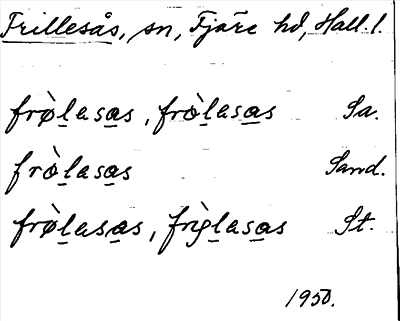 Frillesås, sn, Fjäre hd, Hall. l.
frø̀lasas, fròlasas Sa.
fròlasas Sand.
frø̀lasas, frìlasas St.
1950.